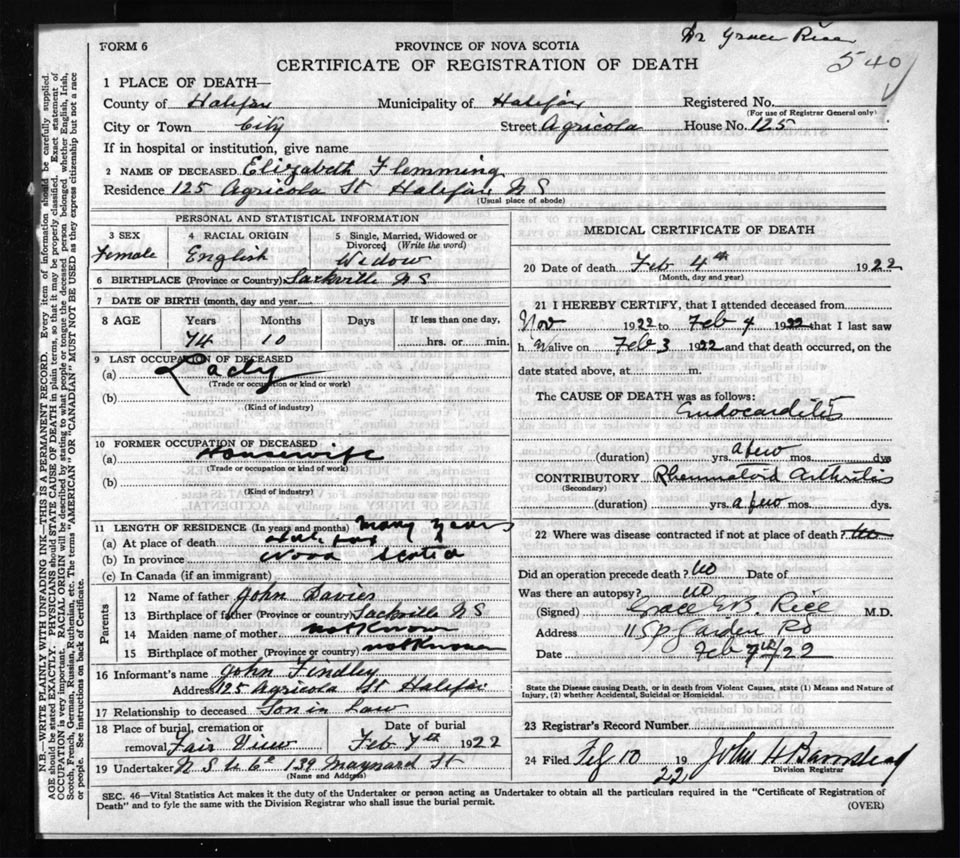 Dr Grace Rice
540
FORM 6
PROVINCE OF NOVA SCOTIA
CERTIFICATE OF REGISTRATION OF DEATH
1 PLACE OF DEATH—
County of Halifax Municipality of Halifax Registered No.
(For use of Registrar General only)
City or Town City Street Agricola House No. 125
If in hospital or institution, give name
2 NAME OF DECEASED Elizabeth Flemming
Residence 125 Agricola St Halifax N S
(Usual place of abode)
PERSONAL AND STATISTICAL INFORMATION
3 SEX 4 RACIAL ORIGIN 5 Single, Married, Widowed or Divorced (Write the word)
Female English Widow
6 BIRTHPLACE (Province or Country) Sackville N S
7 DATE OF BIRTH (month, day and year)
8 AGE Years Months Days If less than one day,
74 10 hrs. or min.
9 LAST OCCUPATION OF DECEASED
(a) Lady
(Trade or occupation or kind of work)
(b)
(Kind of industry)
10 FORMER OCCUPATION OF DECEASED
(a) Housewife
(Trade or occupation or kind of work)
(b)
(Kind of industry)
11 LENGTH OF RESIDENCE (In years and months) Many years
(a) At place of death Halifax
(b) In province Nova Scotia
(c) In Canada (if an immigrant)
Parents
12 Name of father John Davies
13 Birthplace of father (Province or country) Sackville N S
14 Maiden name of mother not Know
15 Birthplace of mother (Province or country) not Known
16 Informant's name John Findley
Address 125 Agricola St Halifax
17 Relationship to deceased Son in Law
18 Place of burial, cremation or removal Fair View Date of burial Feb 7th 1922
19 Undertaker N S U Co 139 Maynard St
(Name and Address)
MEDICAL CERTIFICATE OF DEATH
20 Date of death Feb 4th 1922
(Month, day and year)
21 I HEREBY CERTIFY, that I attended deceased from
Nov 1922 to Feb 4 1922 that I last saw
h alive on Feb 3 1922 and that death occurred, on the
date stated above, at m.
The CAUSE OF DEATH was as follows:
Endocarditis
(duration) yrs. a few mos. dys
CONTRIBUTORY Rheumatoid Arthritis
(Secondary)
(duration) a few yrs. mos. dys.
22 Where was disease contracted if not at place of death?
Did an operation precede death? no Date of
Was there an autopsy? no
(Signed) Grace E.B. Rice M.D.
Address Garden Rd
Date Feb 7th/22
State the Disease causing Death, or in death from Violent Causes, state (1) Means and Nature of
Injury, (2) whether Accidental, Suicidal or Homicidal.
23 Registrar's Record Number
24 Filed Feb 10 1922 John H Barnstead
Division Registrar
SEC. 46—Vital Statistics Act makes it the duty of the Undertaker or person acting as Undertaker to obtain all the particulars required in the "Certificate of Registration of
Death" and to fyle the same with the Division Registrar who shall issue the burial permit.
(OVER)
N.B.—WRITE PLAINLY WITH UNFADING INK—THIS IS A PERMANENT RECORD. Every item of information should be carefully supplied.
AGE should be stated EXACTLY. PHYSICIANS should STATE CAUSE OF DEATH in plain terms, so that it may be properly classified. Exact statement of
OCCUPATION is very important. RACIAL ORIGIN will be described by stating to what people or tongue the deceased person belonged whether English, Irish,
Scotch, French, German, Russian, Ruthenian, etc. The terms "AMERICAN" OR "CANADIAN" MUST NOT BE USED as they express citizenship but not a race
or people. See instructions on back of Certificate.